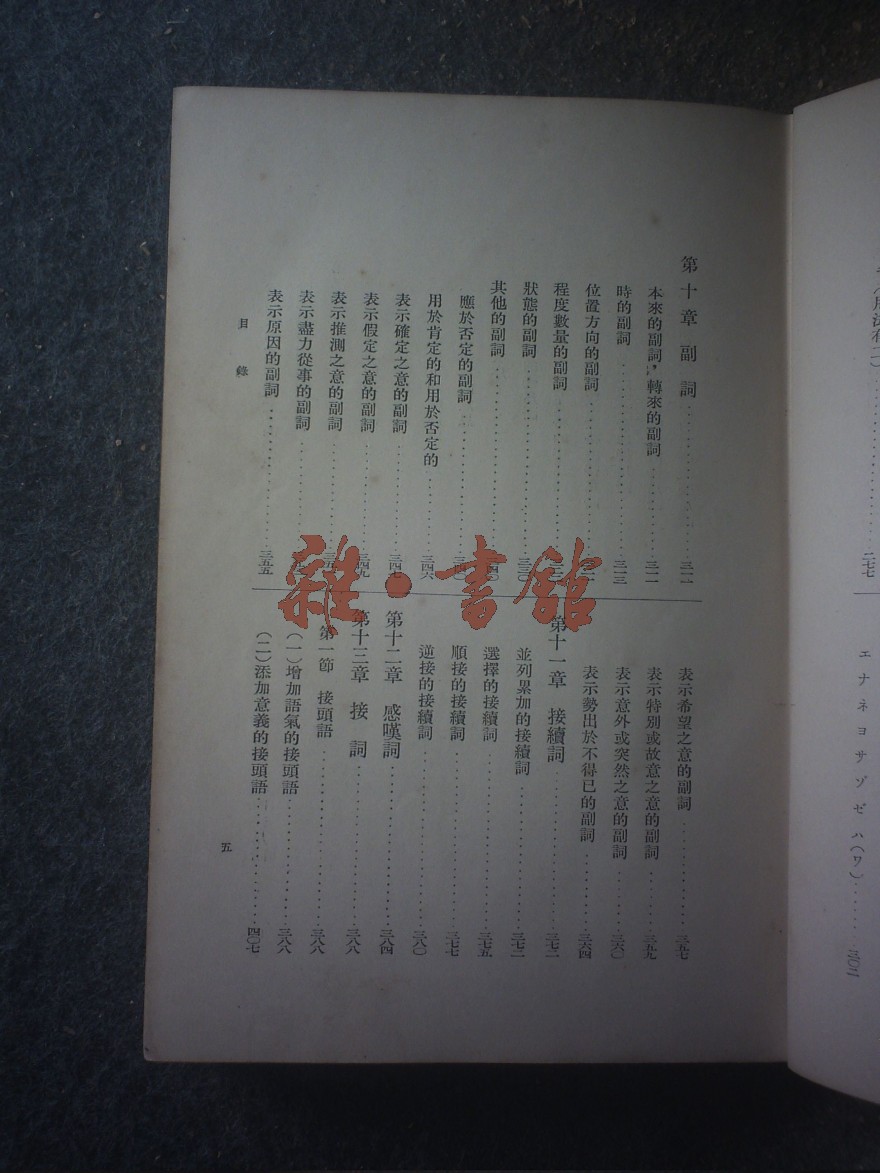 第十章 副詞 三一一
本來的副詞，轉來的副詞 三一一
時的副詞 三一三
位置方向的副詞
程度數量的副詞
狀態的副詞 三三〇
其他的副詞 三四〇
應於否定的副詞 三四〇
用於肯定的和用於否定的 三四六
表示確定之意的副詞 三四七
表示假定之意的副詞 三四九
表示推測之意的副詞
表示盡力從事的副詞
表示原因的副詞 三五五
表示希望之意的副詞 三五七
表示特別或故意之意的副詞 三五九
表示意外或突然之意的副詞 三六〇
表示勢出於不得已的副詞 三六四
第十一章 接續詞 三七二
並列累加的接續詞 三七二
選擇的接續詞 三七五
順接的接續詞 三七七
逆接的接續詞 三八〇
第十二章 感嘆詞 三八四
第十三章 接詞 三八八
第一節 接頭語 三八八
（一）增加語氣的接頭語 三八八
（二）添加意義的接頭語 四〇七
目錄
五
二七七
エナネヨサゾゼハ（ワ） 三〇二
雜·書館